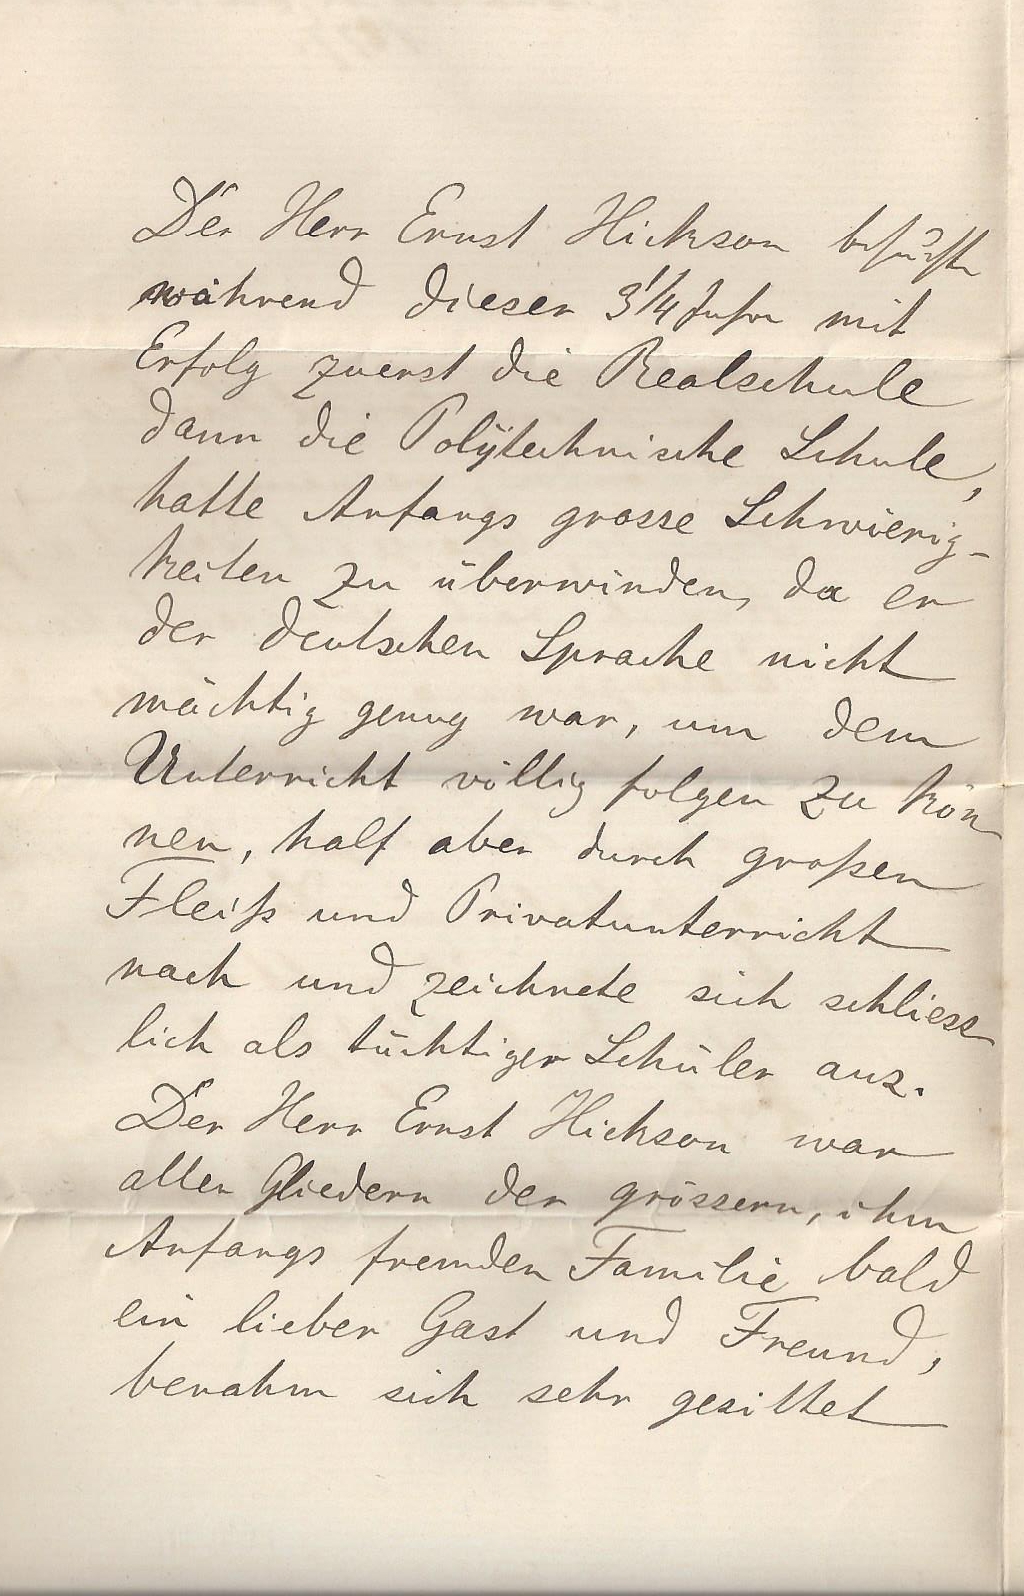 Der Herr Ernst Hickson besuchte
während dieser 3 1/4 Jahre mit
Erfolg zuerst die Realschule
dann die Polÿtechnische Schule,
hatte Anfangs grosse Schwierig-
keiten zu überwinden, da er
der deutschen Sprache nicht
mächtig genug war, um dem
Unterricht völlig folgen zu kön
nen, half aber durch großen
Fleiß und Privatunterricht
nach und zeichnete sich schliess
lich als tüchtiger Schüler aus.
Der Herr Ernst Hickson war
allen Gliedern der grössern, ihm
Anfangs fremden Familie bald
ein lieber Gast und Freund,
benahm sich sehr gesittet